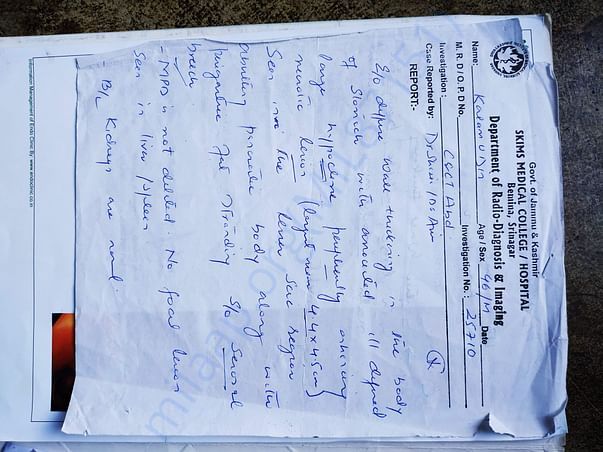 Govt. of Jammu & Kashmir
SKIMS MEDICAL COLLEGE / HOSPITAL
Bemina, Srinagar
Department of Radio-Diagnosis & Imaging
Name: Kalam U Din Age / Sex 46/M Date
M. R. D / O. P. D No. Investigation No.: 25710
Investigation : CECT Abd
Case Reported by: Dr
REPORT:-
E/o diffuse wall thickening in the body
of stomach with associated ill defined
large hypodense peripherally enhancing
necrotic lesion (largest 4.4 x 4.5 cm)
seen in the lesser sac region
abutting pancreatic body along with
perigastric fat stranding s/o serosal
breach.
- MPD is not dilated. No focal lesion
seen in liver / spleen
- B/L Kidneys are normal.
Information Management of Endo Clinic By: www.endoclinic.co.in
milaap.org